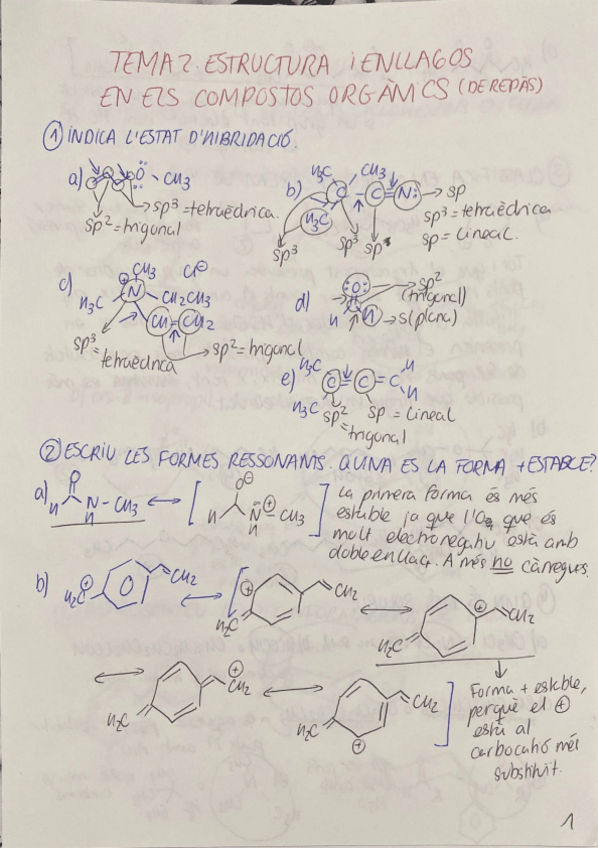 TEMA 2 ESTRUCTURA i ENLLAÇOS
EN ELS COMPOSTOS ORGÀNICS (DE REPÀS)
① INDICA L'ESTAT D'HIBRIDACIÓ.
a) O - CH3
sp3 = tetraèdrica.
sp2 = trigonal
b) H3C CH3
C - C ≡ N: → sp
H3C
sp3 = tetraèdrica
sp = lineal.
sp3 sp3 sp
c) CH3 Cl⊖
⊕
H3C N CH2CH3
CH = CH2
sp3 = tetraèdrica
sp2 = trigonal
d) :O: → sp2
(trigonal)
C
H H → s(plana)
e) H3C
C = C = C H
H
H3C
sp2 = trigonal
sp = lineal
② ESCRIU LES FORMES RESSONANTS. QUINA ES LA FORMA + ESTABLE?
a) O
H N - CH3
H
↔ [ O⊖
H N⊕ = CH3
H ]
La primera forma és més
estable ja que l'O que és
molt electronegatiu està amb
doble enllaç. A més no càrregues.
b) ⊕
H2C CH2
↔ [ ⊕ CH2
H2C
↔ ⊕ CH2
H2C
↔ ⊕
CH2
H2C
↔ CH2
H2C
⊕ ]
Forma + estable,
perquè el ⊕
està al
carbocatió més
substituït.
1